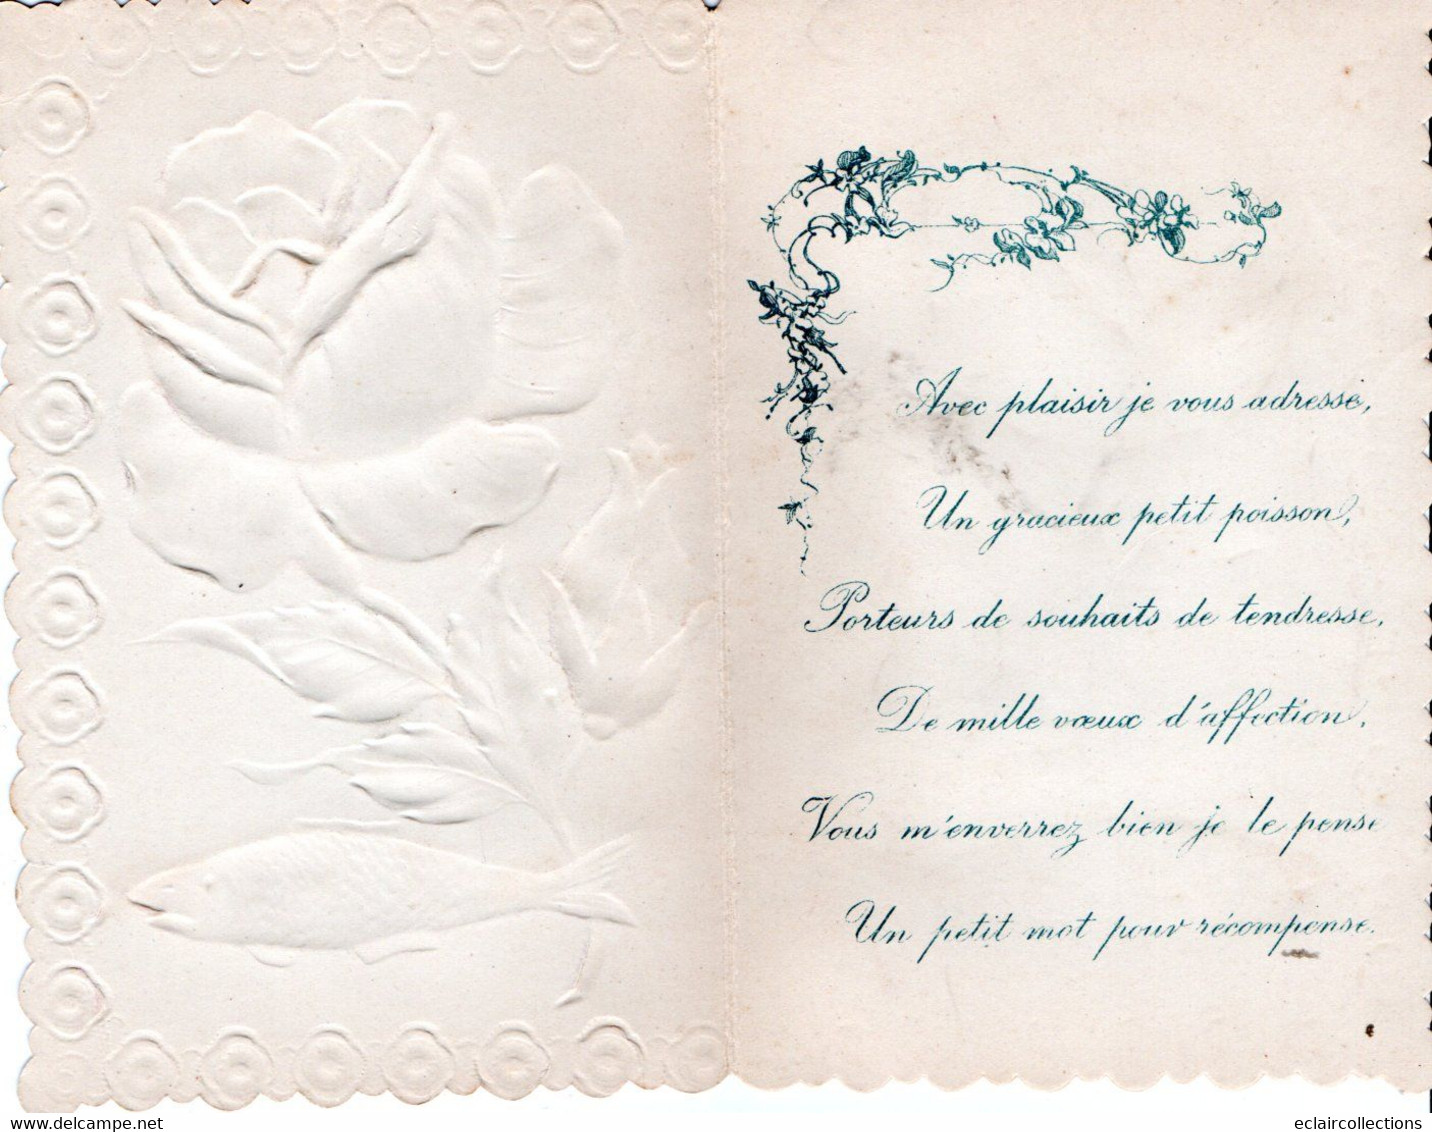 Avec plaisir je vous adresse,
Un gracieux petit poisson,
Porteurs de souhaits de tendresse,
De mille vœux d'affection,
Vous m'enverrez bien je le pense
Un petit mot pour récompense.
www.delcampe.net
eclaircollections